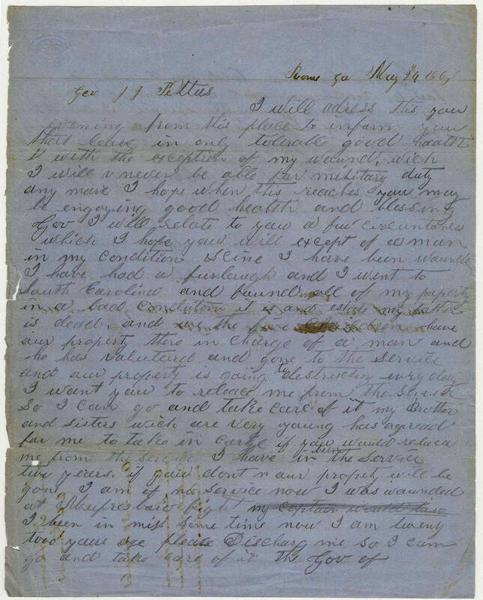 Rome Ga May 24 186
Gov J J Pettus
I will adress this your
evening from this place to inform you
that I am in only tolerable good health
with the exception of my wound, wich
I will never be able for military duty
any more I hope when this reaches you may
be engoying good health and blessing
Gov I will relate to you a few circumstances
which I hope you will except of a man
in my condition Scine I have been wounded
I have had a furlough and I went to
South Carolina and found all of my property
in a bad condition it is and
is dead. and the have
our property there in charge of a man and
he has valuntered and gone to the Service
and our property is going destruction every day
I want you to release me from the service
So I can go and take care of it my Brother
and sisters wich are very young has agread
for me to take in carge if you would release
me from the service I have bin in the Service
two years. if you dont our propety will be
gon I am of no service now I was wounded
at fight my Captain would have
I been in miss Some time now I am twenty
two years age please Discharg me so I can
go and take care of it the Gov of